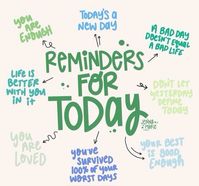 you are
enough
TODAY'S a
NEW DAY
A BAD DAY
DOESN'T EQUAL
A BAD LIFE
REMINDERS
FOR
TODAY
LIFE IS
BETTER
WITH YOU
IN IT
DON'T LET
YESTERDAY
DEFINE
TODAY
JENNA
MARIE
you are
LOVED
you've
SURVIVED
100% OF YOUR
WORST DAYS
YOUR BEST
IS GOOD
ENOUGH